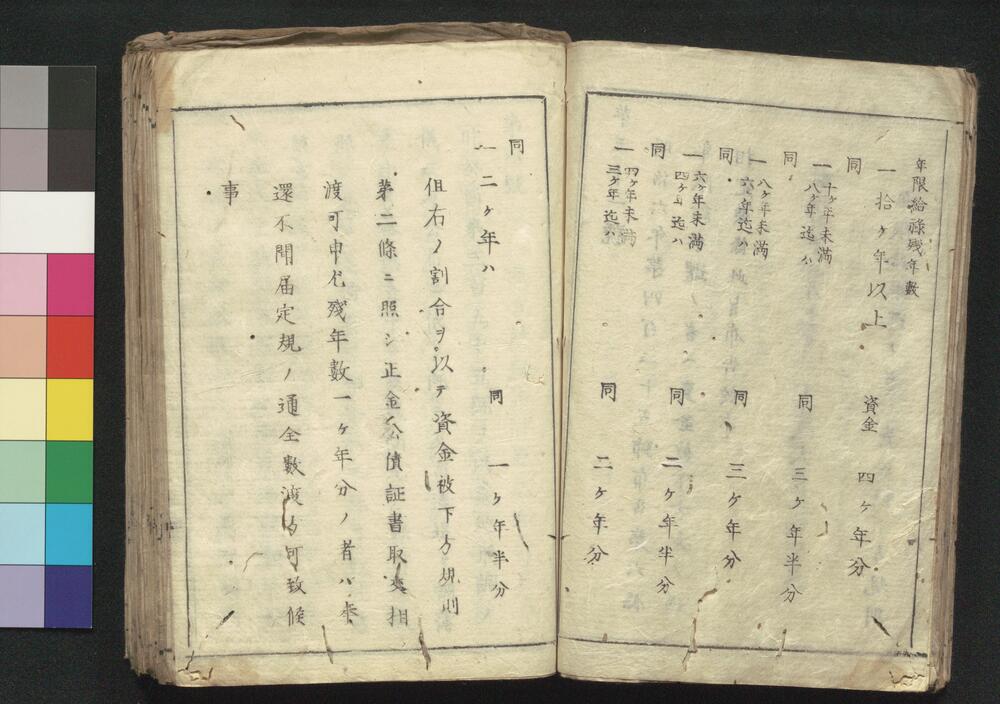 年限給祿残年數
一拾ヶ年以上 資金 四ヶ年分
同
一十ヶ年未満
八ヶ年迄ハ 同 三ヶ年半分
同
一八ヶ年未満
六ヶ年迄ハ 同 三ヶ年分
同
一六ヶ年未満
四ヶ年迄ハ 同 二ヶ年半分
同
一四ヶ年未満
三ヶ年迄ハ 同 二ヶ年分
同
一二ヶ年ハ 同 一ヶ年半分
但右ノ割合ヲ以テ資金被下方規則
第二條ニ照シ正金公債証書取交相
渡可申尤残年數一ヶ年分ノ者ハ奉
還不聞届定規ノ通全數渡方可致候
事